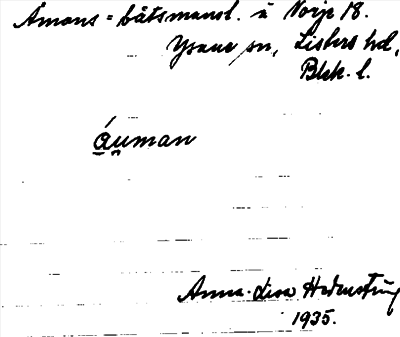 Åmans = båtsmansl. å Norje 18.
Ysane sn, Listers hd,
Blek. l.
áu̯man
Anna-Lisa Hedenstierna
1935.